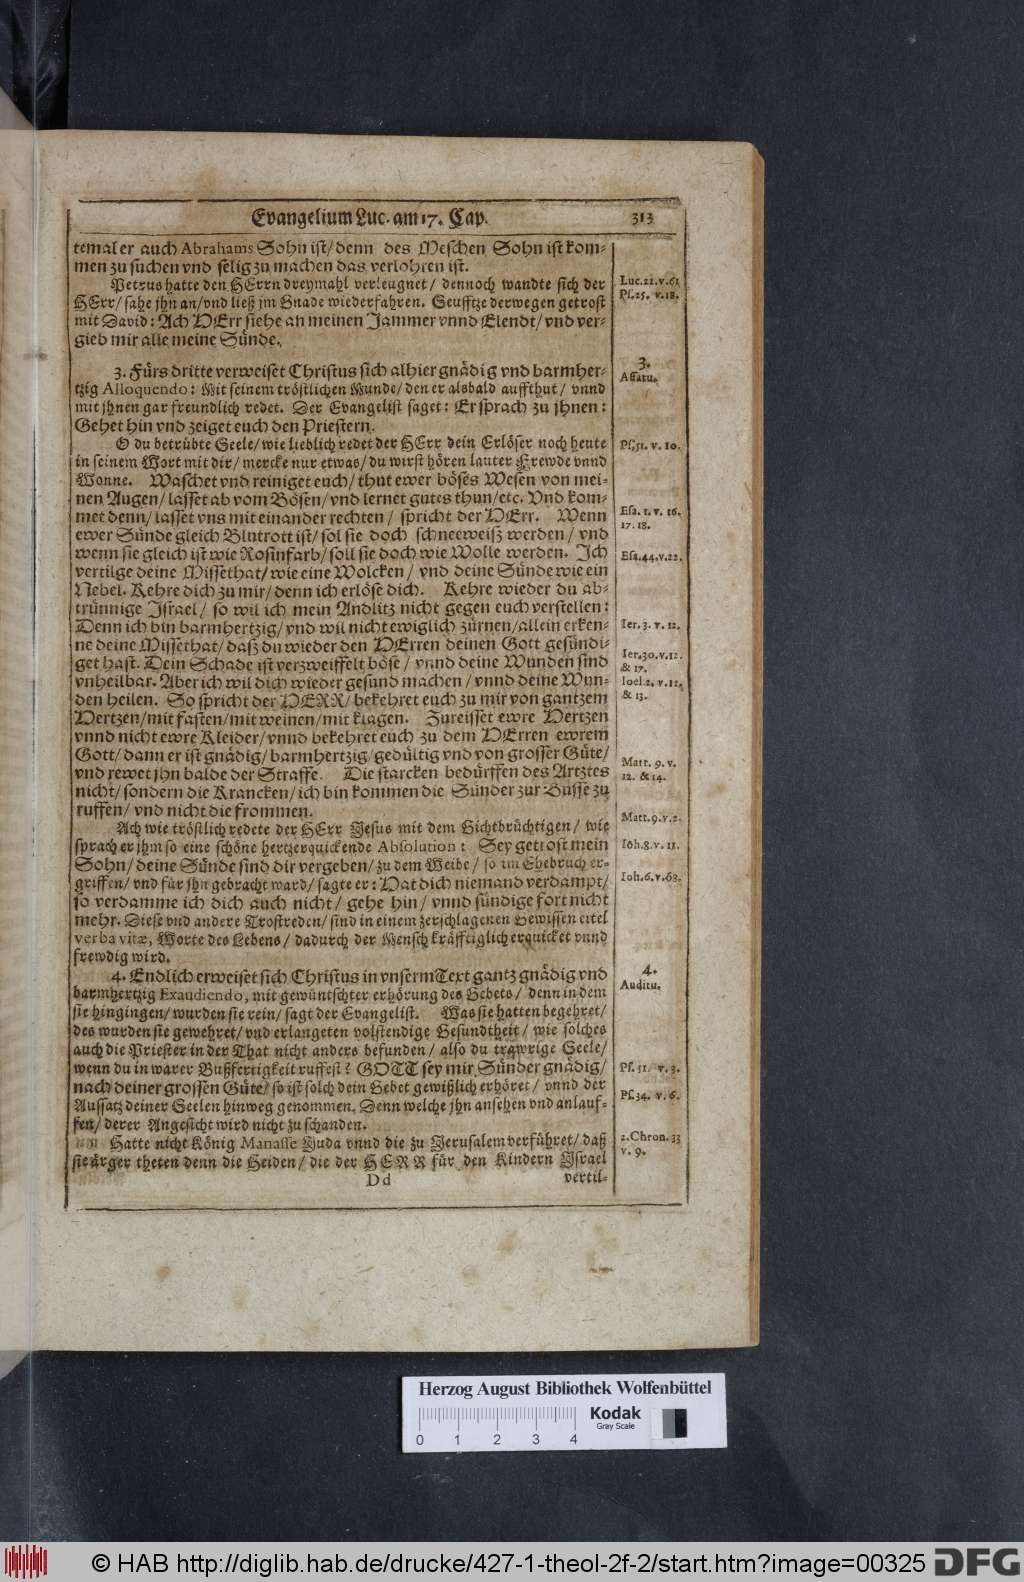 Evangelium Luc. am 17. Cap. 313
temal er auch Abrahams Sohn ist/ denn des Meschen Sohn ist kom-
men zu suchen vnd selig zu machen das verlohren ist.
Petrus hatte den HErrn dreymahl verleugnet/ dennoch wandte sich der
HErr/ sahe jhn an/ vnd ließ jm Gnade wiederfahren. Seufftze derwegen getrost
mit David: Ach HErr siehe an meinen Jammer vnnd Elendt/ vnd ver-
gieb mir alle meine Sünde.
Luc. 22. v. 61
Ps. 25. v. 18.
3. Fürs dritte verweiset Christus sich alhier gnädig vnd barmher-
tzig Alloquendo: Mit seinem tröstlichen Munde/ den er alsbald auffthut/ vnnd
mit jhnen gar freundlich redet. Der Evangelist saget: Er sprach zu jhnen:
Gehet hin vnd zeiget euch den Priestern.
3.
Affatu.
O du betrübte Seele/ wie lieblich redet der HErr dein Erlöser noch heute
in seinem Wort mit dir/ mercke nur etwas/ du wirst hören lauter Frewde vnnd
Wonne. Waschet vnd reiniget euch/ thut ewer böses Wesen von mei-
nen Augen/ lasset ab vom Bösen/ vnd lernet gutes thun/ etc. Vnd kom-
met denn/ lasset vns mit einander rechten/ spricht der HErr. Wenn
ewer Sünde gleich Blutrott ist/ sol sie doch schneeweiß werden/ vnd
wenn sie gleich ist wie Rosinfarb/ soll sie doch wie Wolle werden. Ich
vertilge deine Missethat/ wie eine Wolcken/ vnd deine Sünde wie ein
Nebel. Kehre dich zu mir/ denn ich erlöse dich. Kehre wieder du ab-
trünnige Israel/ so wil ich mein Andlitz nicht gegen euch verstellen:
Denn ich bin barmhertzig/ vnd wil nicht ewiglich zürnen/ allein erken-
ne deine Missethat/ daß du wieder den HErren deinen Gott gesündi-
get hast. Dein Schade ist verzweiffelt böse/ vnnd deine Wunden sind
vnheilbar. Aber ich wil dich wieder gesund machen/ vnnd deine Wun-
den heilen. So spricht der HERR/ bekehret euch zu mir von gantzem
Hertzen/ mit fasten/ mit weinen/ mit klagen. Zureisset ewre Hertzen
vnnd nicht ewre Kleider/ vnnd bekehret euch zu dem HErren ewrem
Gott/ dann er ist gnädig/ barmhertzig/ gedültig vnd von grosser Güte/
vnd rewet jhn balde der Straffe. Die starcken bedürffen des Artztes
nicht/ sondern die Krancken/ ich bin kommen die Sünder zur Busse zu
ruffen/ vnd nicht die frommen.
Ps. 51. v. 10.
Esa. 1. v. 16.
17. 18.
Esa. 44. v. 22.
Ier. 3. v. 12.
Ier. 30. v. 12.
& 17.
Ioel 2. v. 12.
& 13.
Matt. 9. v.
12. & 14.
Ach wie tröstlich redete der HErr Jesus mit dem Gichtbrüchtigen/ wie
sprach er jhm so eine schöne hertzerquickende Absolution: Sey getrost mein
Sohn/ deine Sünde sind dir vergeben/ zu dem Weibe/ so im Ehebruch er-
griffen/ vnd für jhn gebracht ward/ sagte er: Hat dich niemand verdampt/
so verdamme ich dich auch nicht/ gehe hin/ vnnd sündige fort nicht
mehr. Diese vnd andere Trostreden/ sind in einem zerschlagenen Gewissen eitel
verba vitæ, Worte des Lebens/ dadurch der Mensch kräfftiglich erquicket vnnd
frewdig wird.
Matt. 9. v. 2.
Ioh. 8. v. 11.
Ioh. 6. v. 63.
4. Endlich erweiset sich Christus in vnserm Text gantz gnädig vnd
barmhertzig Exaudiendo, mit gewüntschter erhörung des Gebets/ denn in dem
sie hingingen/ wurden sie rein/ sagt der Evangelist. Was sie hatten begehret/
des wurden sie gewehret/ vnd erlangeten volstendige Gesundtheit/ wie solches
auch die Priester in der That nicht anders befunden/ also du trawrige Seele/
wenn du in warer Bußfertigkeit ruffest? GOTT sey mir Sünder gnädig/
nach deiner grossen Güte/ so ist solch dein Gebet gewißlich erhöret/ vnnd der
Aussatz deiner Seelen hinweg genommen. Denn welche jhn ansehen vnd anlauf-
fen/ derer Angesicht wird nicht zu schanden.
4.
Auditu.
Ps. 51. v. 3.
Ps. 34. v. 6.
Hatte nicht König Manasse Juda vnnd die zu Jerusalem verführet/ daß
sie ärger theten denn die Heiden/ die der HERR für den Kindern Israel
2. Chron. 33
v. 9.
Dd vertil-
Herzog August Bibliothek Wolfenbüttel
Kodak
Gray Scale
0 1 2 3 4
© HAB http://diglib.hab.de/drucke/427-1-theol-2f-2/start.htm?image=00325 DFG